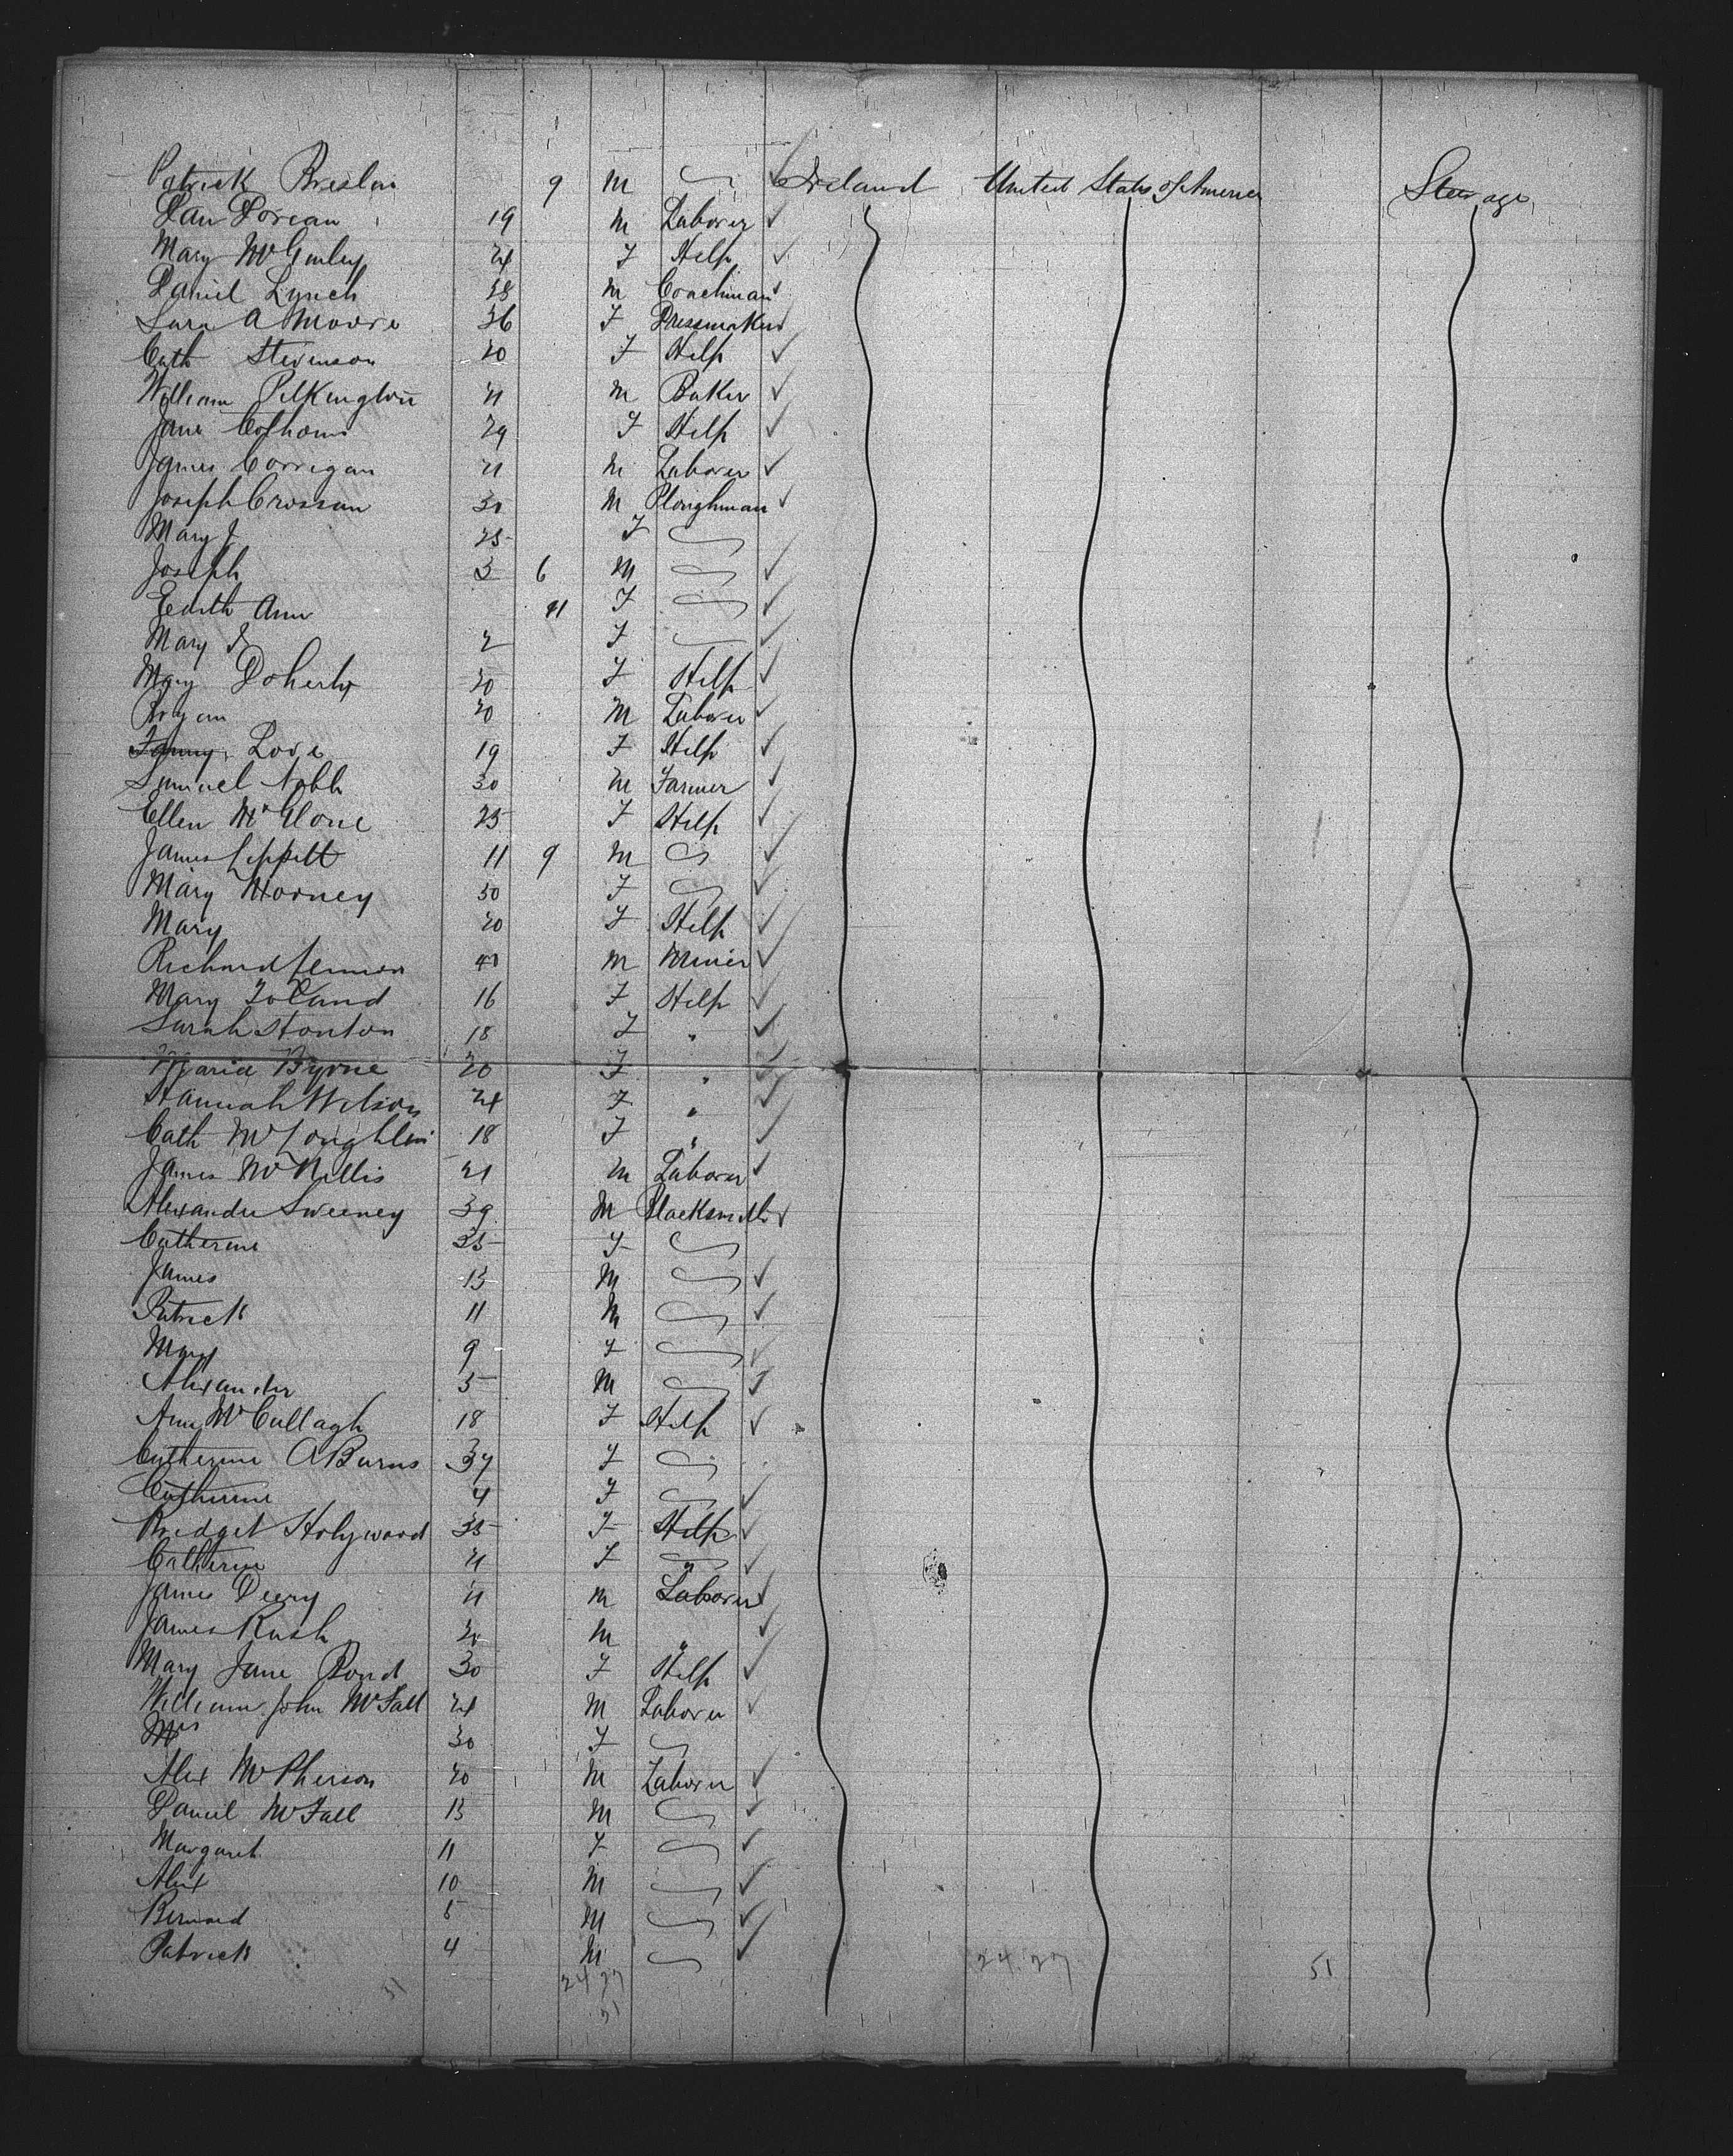 Patrick Breslin 9 M Ireland United States of America Steerage
Dan Dorean 19 M Laborer
Mary McGinley 24 F Help
Daniel Lynch 28 M Coachman
Sara A Moore 36 F Dressmaker
Cath Stevenson 20 F Help
William Pilkington 21 M Baker
Jane Colhoun 29 F Help
James Corrigan 21 M Laborer
Joseph Crossan 30 M Ploughman
Mary J 25 F
Joseph 3 6 M
Edith Ann 11 F
Mary J 2 F
Mary Doherty 20 F Help
Bryan 20 M Laborer
Fanny Love 19 F Help
Samuel Noble 30 M Farmer
Ellen McGlone 25 F Help
James Lippett 11 9 M
Mary Horney 50 F
Mary 20 F Help
Richard M Miner
Mary Toland 16 F Help
Sarah Stonton 18 F "
Maria Byrne 20 F "
Hannah Wilson 24 F "
Cath McLoughlin 18 F "
James McNillis 21 M Laborer
Alexander Sweeney 39 M Blacksmith
Catherine 35 F
James 13 M
Patrick 11 M
Mary 9 F
Alexander 5 M
Ann McCullagh 18 F Help
Catherine A Burns 37 F
Catherine 4 F
Bridget Holywood 35 F Help
Catherine 21 F "
James Deery 21 M Laborer
James Rush 20 M "
Mary Jane Bond 30 F Help
William John McFall 24 M Laborer
Mrs 30 F
Alex McPherson 20 M Laborer
Daniel McFall 13 M
Margaret 11 F
Alex 10 M
Bernard 8 M
Patrick 4 M
51 24 27 24.27 51
51